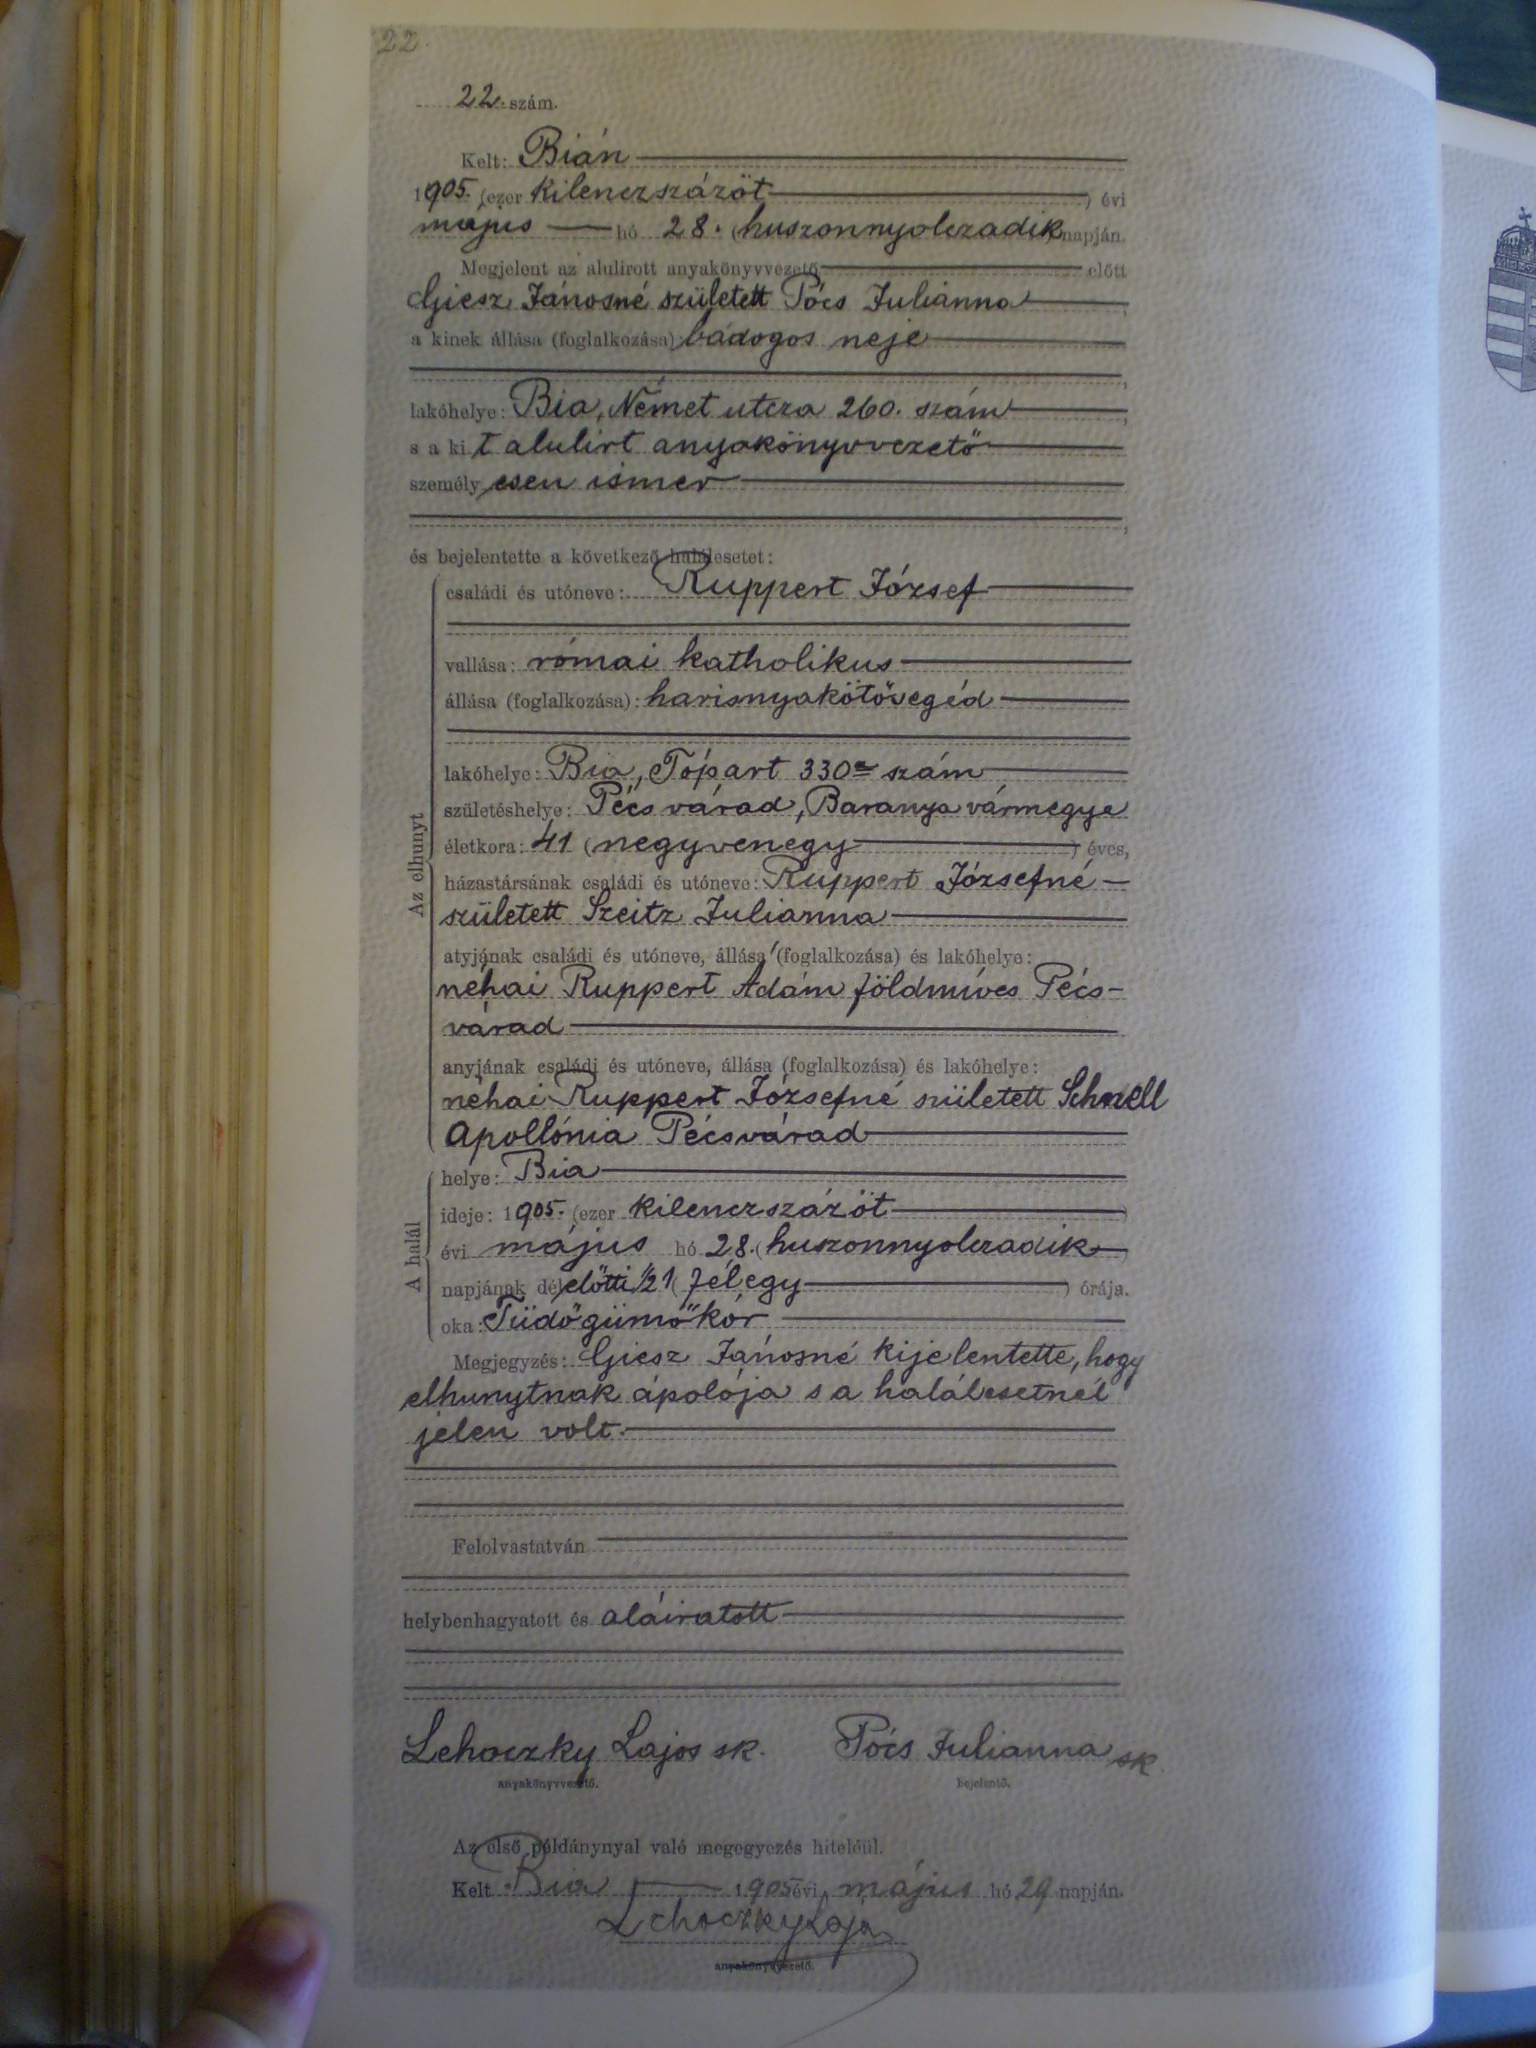 22.
22. szám.
Kelt: Bián
1905. (ezer kilenczszázöt) évi
május hó 28. (huszonnyolczadik) napján.
Megjelent az alulirott anyakönyvvezető előtt
Giesz Jánosné született Pócs Julianna,
a kinek állása (foglalkozása) bádogos neje
,
lakóhelye: Bia, Német utcza 260. szám,
s a kit alulirt anyakönyvvezető
személyesen ismer
,
és bejelentette a következő halálesetet:
Az elhunyt
családi és utóneve: Ruppert József
vallása: római katholikus
állása (foglalkozása): harisnyakötősegéd
lakóhelye: Bia, Tópart 330a szám
születéshelye: Pécsvárad, Baranya vármegye
életkora: 41 (negyvenegy) éves,
házastársának családi és utóneve: Ruppert Józsefné
született Szeitz Julianna
atyjának családi és utóneve, állása (foglalkozása) és lakóhelye:
néhai Ruppert Ádám földmíves Pécs-
várad
anyjának családi és utóneve, állása (foglalkozása) és lakóhelye:
néhai Ruppert Józsefné született Schnell
Apollónia Pécsvárad
A halál
helye: Bia
ideje: 1905. (ezer kilenczszázöt)
évi május hó 28. (huszonnyolczadik)
napjának délelőtti 1/2 1 (fél egy) órája.
oka: Tüdőgümőkór
Megjegyzés: Giesz Jánosné kijelentette, hogy
elhunytnak ápolója s a halálesetnél
jelen volt.
Felolvastatván
helybenhagyatott és aláiratott
Lehoczky Lajos sk. Pócs Julianna sk.
anyakönyvvezető. bejelentő.
Az első példánynyal való megegyezés hiteléül.
Kelt Bia 1905 évi május hó 29 napján.
Lehoczky Lajos
anyakönyvvezető.